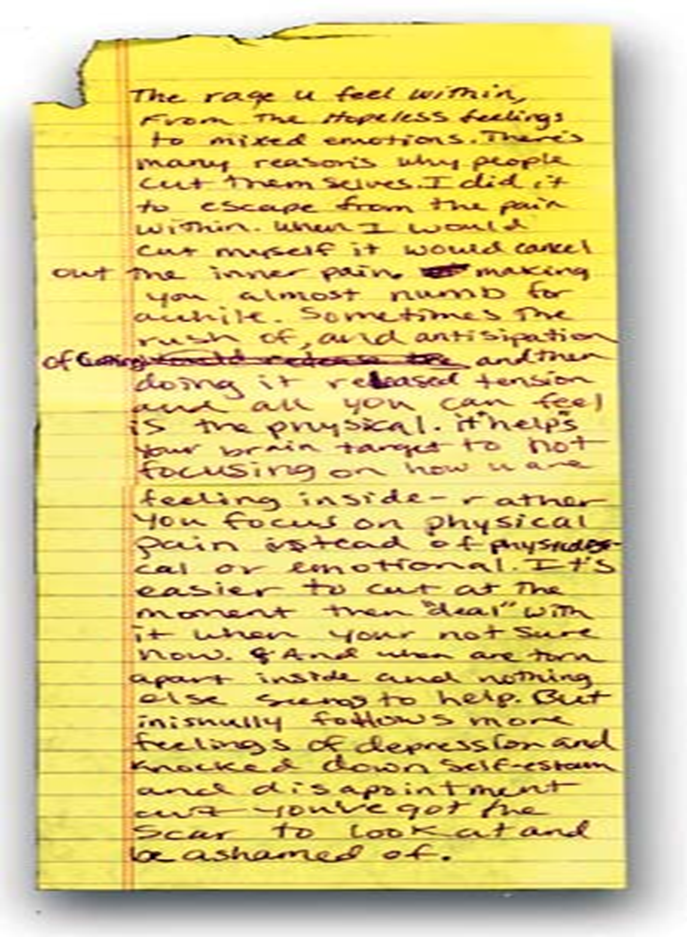 The rage u feel within,
From the Hopeless feelings
to mixed emotions. There's
many reason's why people
cut them selves. I did it
to escape from the pain
within. When I would
cut myself it would cancel
out the inner pain. making
you almost numb for
awhile. Sometimes the
rush of, and antisipation
of and then
doing it released tension
and all you can feel
is the physical. it "help's
your brain target to not
focusing on how u are
feeling inside - rather
you focus on physical
pain instead of physcolog-
cal or emotional. It's
easier to cut at the
moment then "deal" with
it when your not sure
how. & And when are torn
apart inside and nothing
else seems to help. But
inishully follows more
feelings of depression and
knocked down self-estam
and disapointment
you've got the
scar to look at and
be ashamed of.